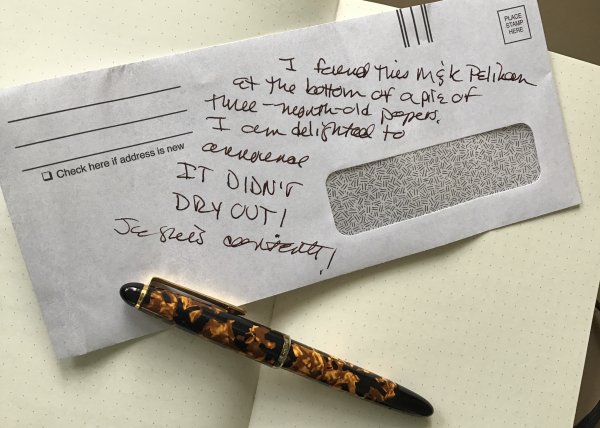 PLACE
STAMP
HERE
I found this M&K Pelikan
at the bottom of a pile of
three-month-old papers.
I am delighted to
announce
IT DIDN'T
DRY OUT!
Je suis
Check here if address is new